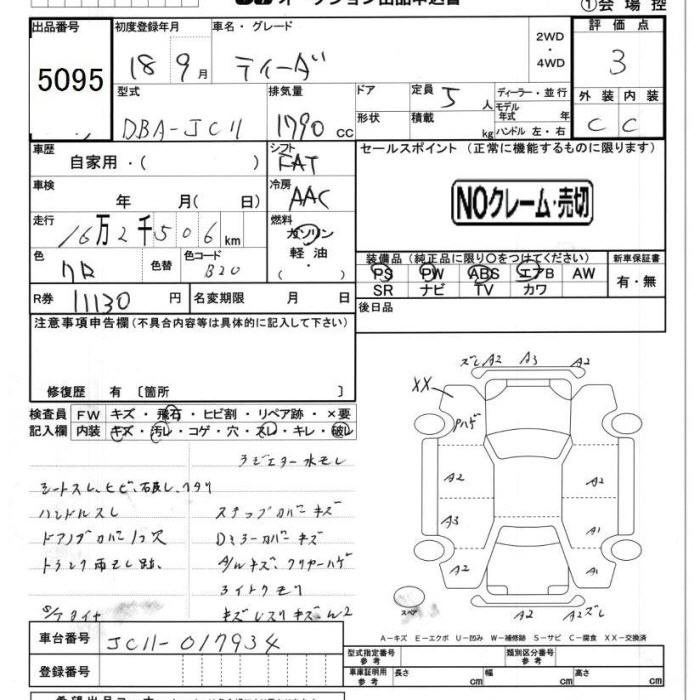 オークション出品申込書
①会場控
出品番号
5095
初度登録年月
18 9月
車名・グレード
ティーダ
2WD
・
4WD
評価点
3
型式
DBA-JC11
排気量
1790 CC
ドア
形状
定員 5 人
積載 kg
ディーラー・並行
モデル
年式 年
ハンドル 左・右
外装 内装
C C
車歴
自家用・( )
シフト
FAT
セールスポイント (正常に機能するものに限ります)
車検
年 月( 日)
冷房
AAC
NOクレーム・売切
走行
16万2千506km
燃料
ガソリン
軽油
・
色
クロ
色替
色コード
B20
装備品 (純正品に限り○をつけてください)
PS PW ABS エアB AW
SR ナビ TV カワ
新車保証書
有・無
R券 11130 円
名変期限 月 日
後日品
注意事項申告欄 (不具合内容等は具体的に記入して下さい)
修復歴 有 〔箇所 〕
検査員
記入欄
FW キズ・飛石・ヒビ割・リペア跡・×要
内装 キズ・汚レ・コゲ・穴・スレ・キレ・破レ
ラジエター水モレ
シートスレ、ヒビ、石良し、ヘタリ
ハンドルスレ
ステップカバーキズ
ドアノブカバー1ヶ欠
Dミラーカバーキズ
トランク雨モレ跡、
A/Wキズ、クリヤーハゲ
ライトクモリ
S/Tタイヤ
ズレ A2 A3 A2
XX
Pハゲ
A2 A2
A3 A1
A2 A1
スペア
A2 A2ズレ
A－キズ E－エクボ U－凹み W－補修跡 S－サビ C－腐食 XX－交換済
車台番号
JC11-017934
登録番号
型式指定番号
参考
類別区分番号
参考
車庫証明用
参考
長さ cm
幅 cm
高さ cm